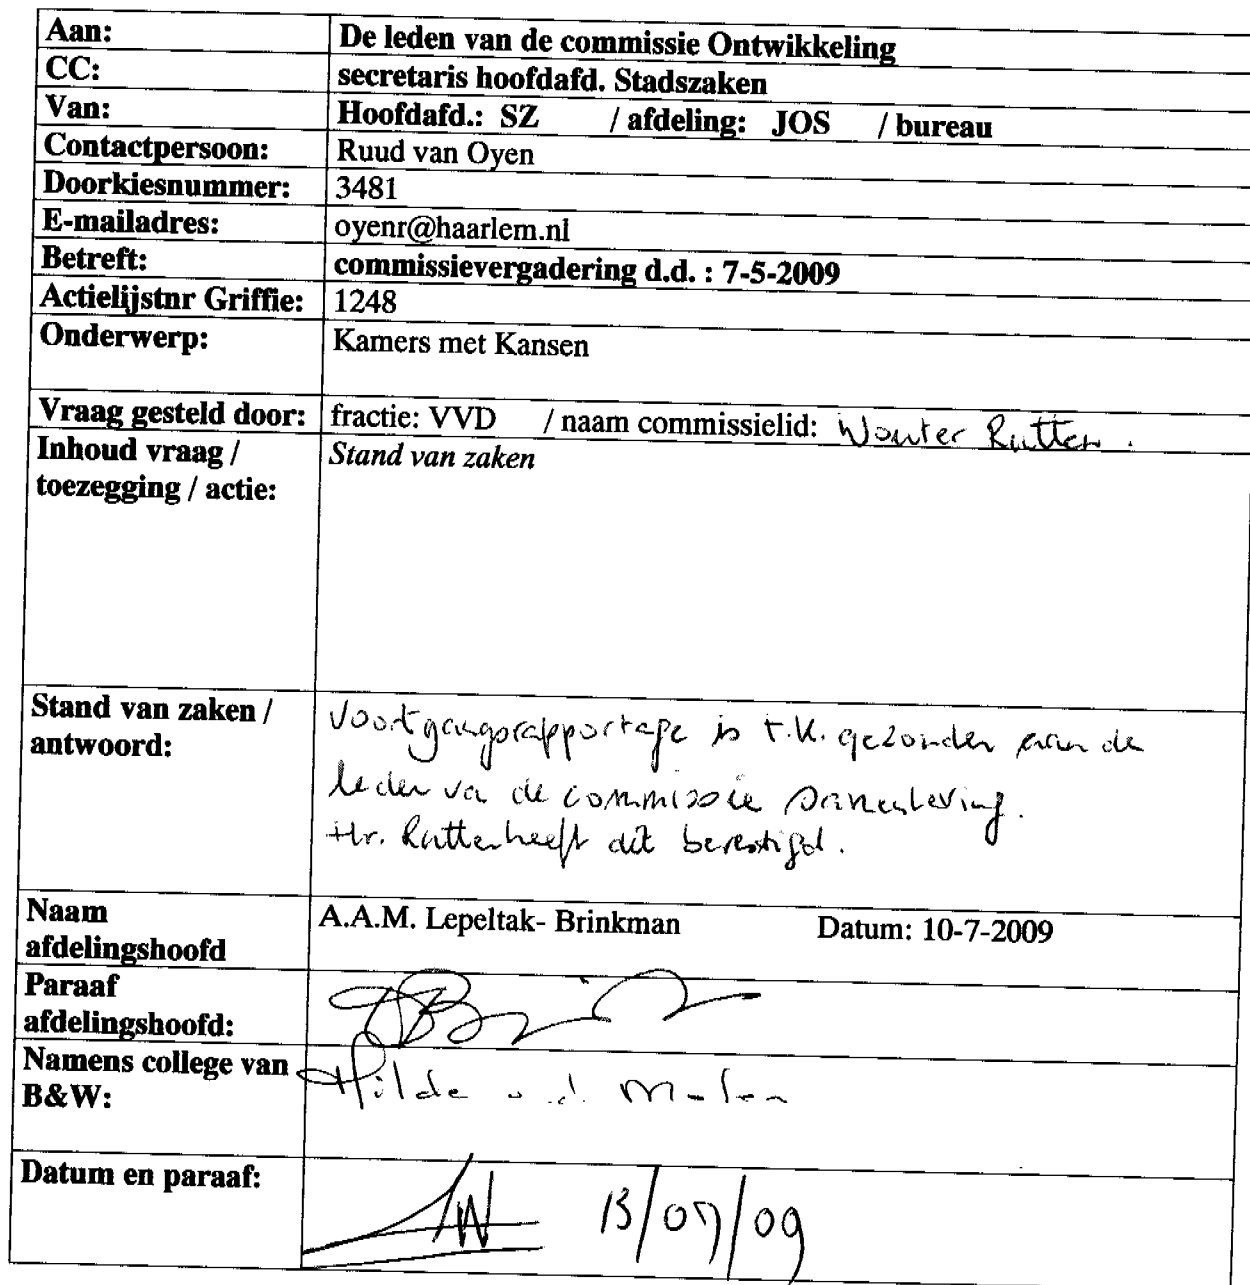 Aan: De leden van de commissie Ontwikkeling
CC: secretaris hoofdafd. Stadszaken
Van: Hoofdafd.: SZ / afdeling: JOS / bureau
Contactpersoon: Ruud van Oyen
Doorkiesnummer: 3481
E-mailadres: oyenr@haarlem.nl
Betreft: commissievergadering d.d. : 7-5-2009
Actielijstnr Griffie: 1248
Onderwerp: Kamers met Kansen
Vraag gesteld door: fractie: VVD / naam commissielid: Wouter Rutten.
Inhoud vraag / Stand van zaken
toezegging / actie:
Stand van zaken / Voortgangsrapportage is t.k. gezonden aan de
antwoord: leden van de commissie Samenleving.
Hr. Rutten heeft dit bevestigd.
Naam A.A.M. Lepeltak- Brinkman Datum: 10-7-2009
afdelingshoofd
Paraaf
afdelingshoofd:
Namens college van Hilde v.d. Molen
B&W:
Datum en paraaf: 13/07/09